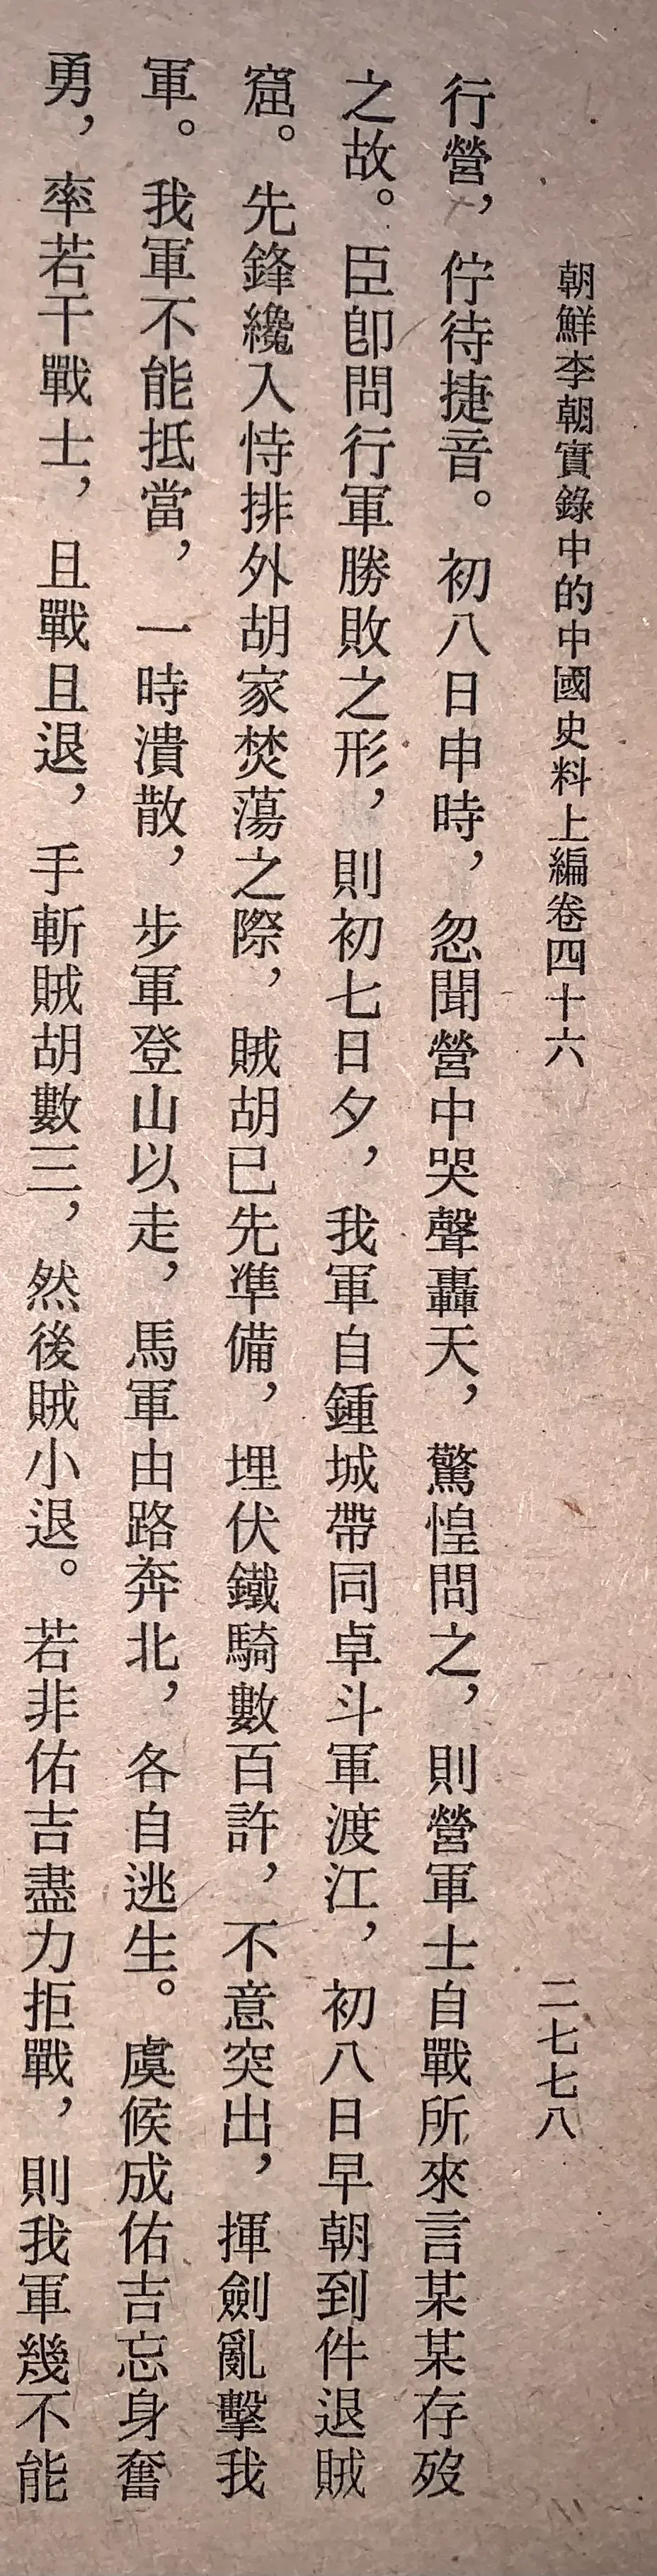 朝鮮李朝實錄中的中國史料上編卷四十六
二七七八
行營，佇待捷音。初八日申時，忽聞營中哭聲轟天，驚惶問之，則營軍士自戰所來言某某存歿
之故。臣卽問行軍勝敗之形，則初七日夕，我軍自鍾城帶同卓斗軍渡江，初八日早朝到件退賊
窟。先鋒纔入恃排外胡家焚蕩之際，賊胡已先準備，埋伏鐵騎數百許，不意突出，揮劍亂擊我
軍。我軍不能抵當，一時潰散，步軍登山以走，馬軍由路奔北，各自逃生。虞候成佑吉忘身奮
勇，率若干戰士，且戰且退，手斬賊胡數三，然後賊小退。若非佑吉盡力拒戰，則我軍幾不能